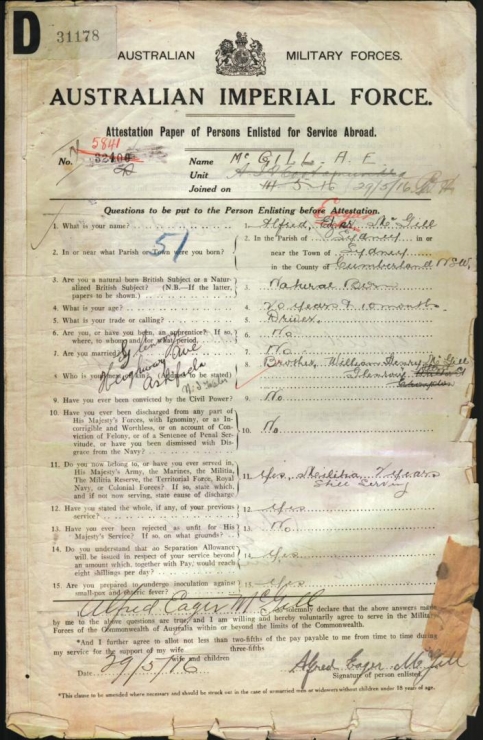 D 31178
AUSTRALIAN MILITARY FORCES.
AUSTRALIAN IMPERIAL FORCE.
Attestation Paper of Persons Enlisted for Service Abroad.
5841
No. 32400 Name McGILL A. E.
Unit
Joined on 29/5/16
Questions to be put to the Person Enlisting before Attestation.
1. What is your name? 1. Alfred, Eager McGill
51
2. In or near what Parish or Town were you born? 2. In the Parish of Sydney in or
near the Town of Sydney
in the County of Cumberland NSW.
3. Are you a natural born British Subject or a Natur-
alized British Subject? (N.B.—If the latter,
papers to be shown) 3. Natural Born
4. What is your age? 4. 20 years & 10 months
5. What is your trade or calling? 5. Driver.
6. Are you, or have you been, an apprentice? If so,
where, to whom, and for what period. 6. No.
7. Are you married? 7. No.
8. Who is your next of kin? (Address to be stated) 8. Brother, William Henry McGill
Ashfield
9. Have you ever been convicted by the Civil Power? 9. No.
10. Have you ever been discharged from any part of
His Majesty's Forces, with Ignominy, or as In-
corrigible and Worthless, or on account of Con-
viction of Felony, or of a Sentence of Penal Ser-
vitude, or have you been dismissed with Dis-
grace from the Navy? 10. No.
11. Do you now belong to, or have you ever served in,
His Majesty's Army, the Marines, the Militia,
The Militia Reserve, the Territorial Force, Royal
Navy, or Colonial Forces? If so, state which,
and if not now serving, state cause of discharge 11. Yes, Militia 7 years
Still Serving
12. Have you stated the whole, if any, of your previous
service? 12. Yes
13. Have you ever been rejected as unfit for His
Majesty's Service? If so, on what grounds? 13. No.
14. Do you understand that no Separation Allowance
will be issued in respect of your service beyond
an amount which, together with Pay, would reach
eight shillings per day? 14. Yes
15. Are you prepared to undergo inoculation against
small-pox and enteric fever? 15. Yes
Alfred Eager McGill solemnly declare that the above answers made
by me to the above questions are true, and I am willing and hereby voluntarily agree to serve in the Military
Forces of the Commonwealth of Australia within or beyond the limits of the Commonwealth.
*And I further agree to allot not less than two-fifths of the pay payable to me from time to time during
three-fifths
my service for the support of my wife
wife and children
Date 29/5/16 Alfred Eager McGill
Signature of person enlisted.
*This clause to be amended where necessary and should be struck out in the case of unmarried men or widowers without children under 18 year of age.